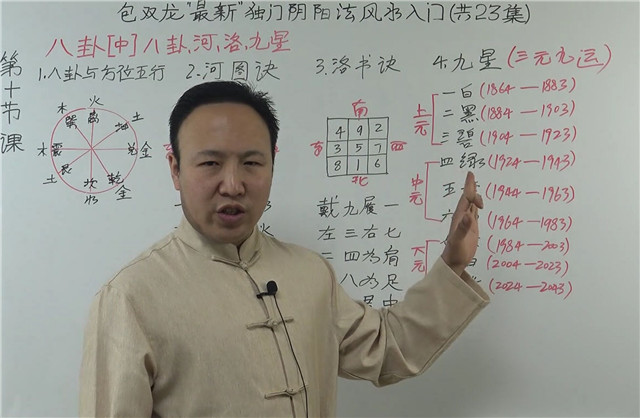 包双龙"最新"独门阴阳法风水入门(共23集)
八卦[中]八卦,河,洛,九星
第十节课
1.八卦与方位五行
2.河图诀
3.洛书诀
4.九星(三元九运)
火
木 巽 离 坤 土
木 震 兑 金
土 艮 坎 乾 金
水
南
4 9 2
东 3 5 7 西
8 1 6
北
戴九履一
左三右七
二四为肩
八为足
上元
一白(1864—1883)
二黑(1884—1903)
三碧(1904—1923)
中元
四绿(1924—1943)
五 (1944—1963)
六 (1964—1983)
下元
(1984—2003)
(2004—2023)
(2024—2043)